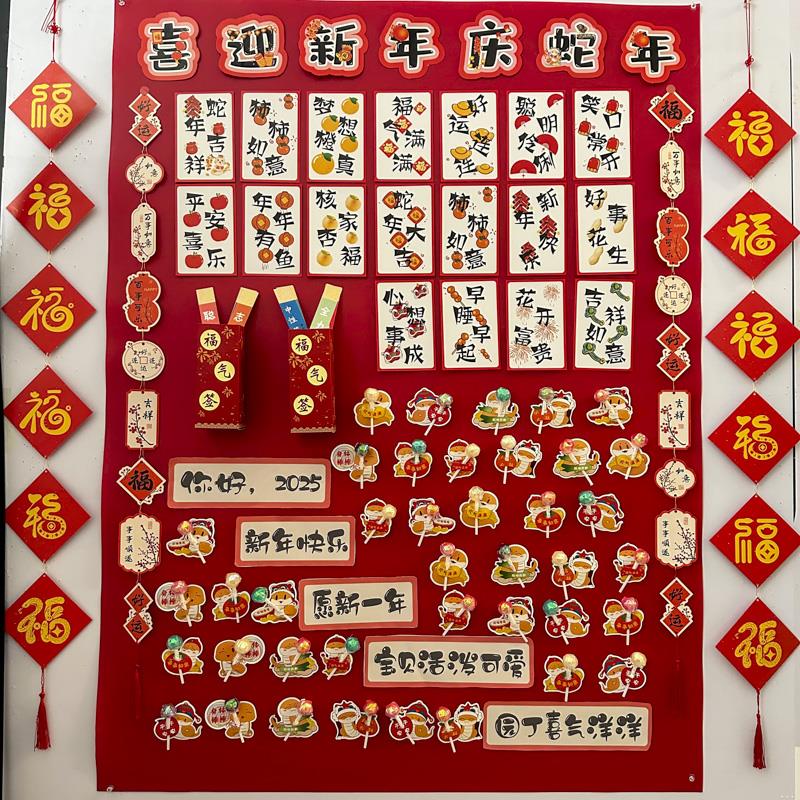 喜迎新年庆蛇年
福
福
福
福
福
福
好运
如意
万事如意
百事可乐
好运连连
吉祥
福
事事顺遂
好运
蛇年吉祥
柿柿如意
梦想橙真
福气满满
好运连连
聪明伶俐
笑口常开
平安喜乐
年年有鱼
核家杏福
蛇年大吉
柿柿如意
好事花生
心想事成
早睡早起
花开富贵
吉祥如意
福气签
福气签
你好，2025
新年快乐
愿新一年
宝贝活泼可爱
园丁喜气洋洋
福
万事如意
百事可乐
好运连连
好运
吉祥
如意
事事顺遂
好运
福
福
福
福
福
福